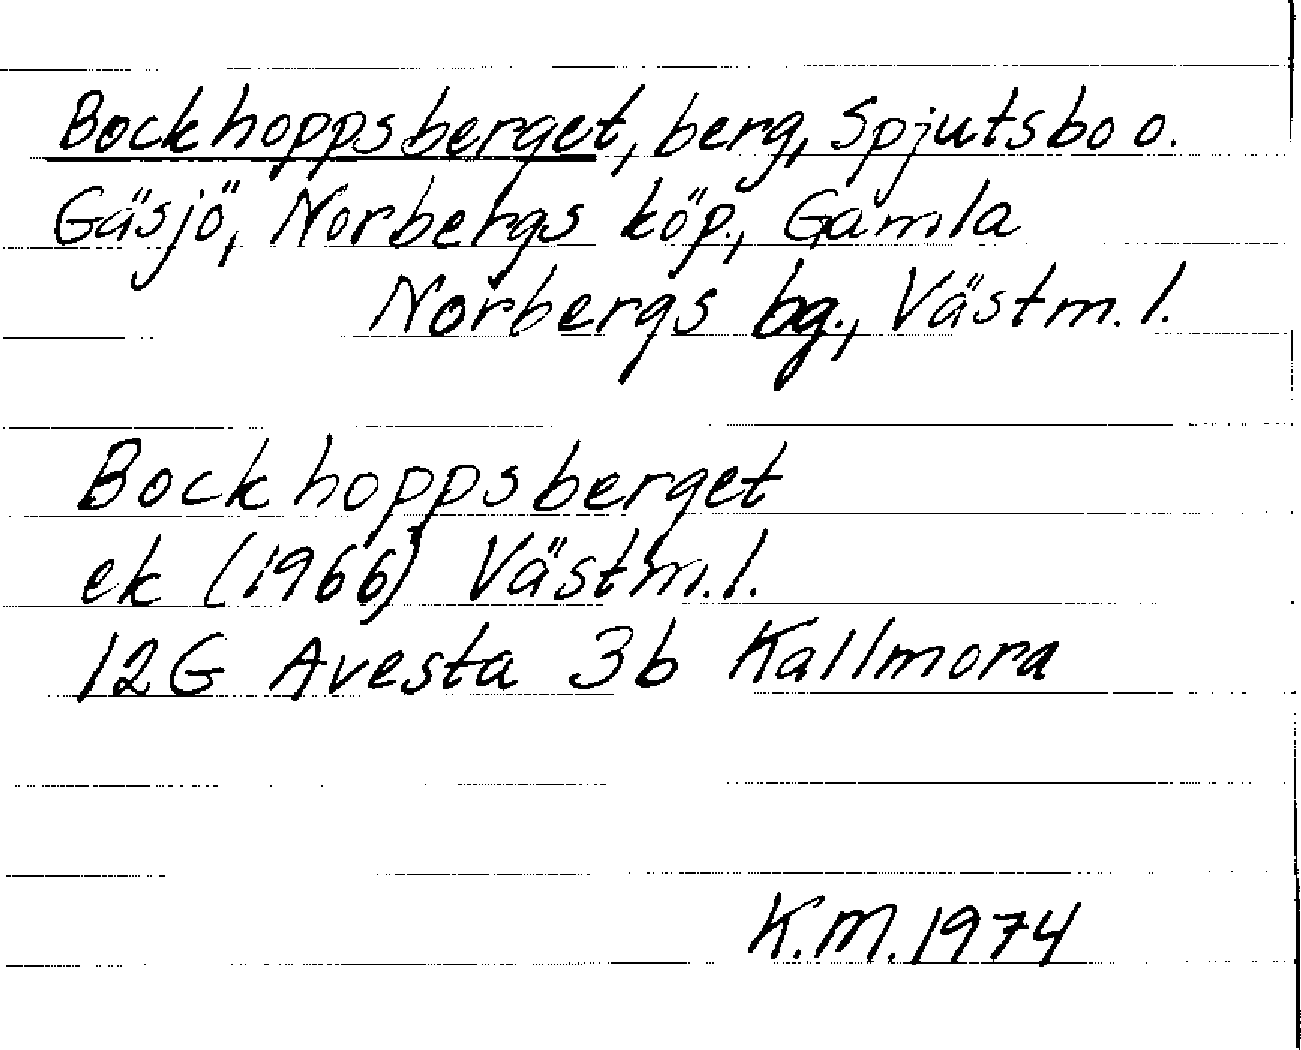 Bockhoppsberget, berg, Spjutsbo o.
Gäsjö, Norbergs köp., Gamla
Norbergs bg., Västm. l.
Bockhoppsberget
ek (1966) Västm. l.
12G Avesta 3b Kallmora
K.M. 1974